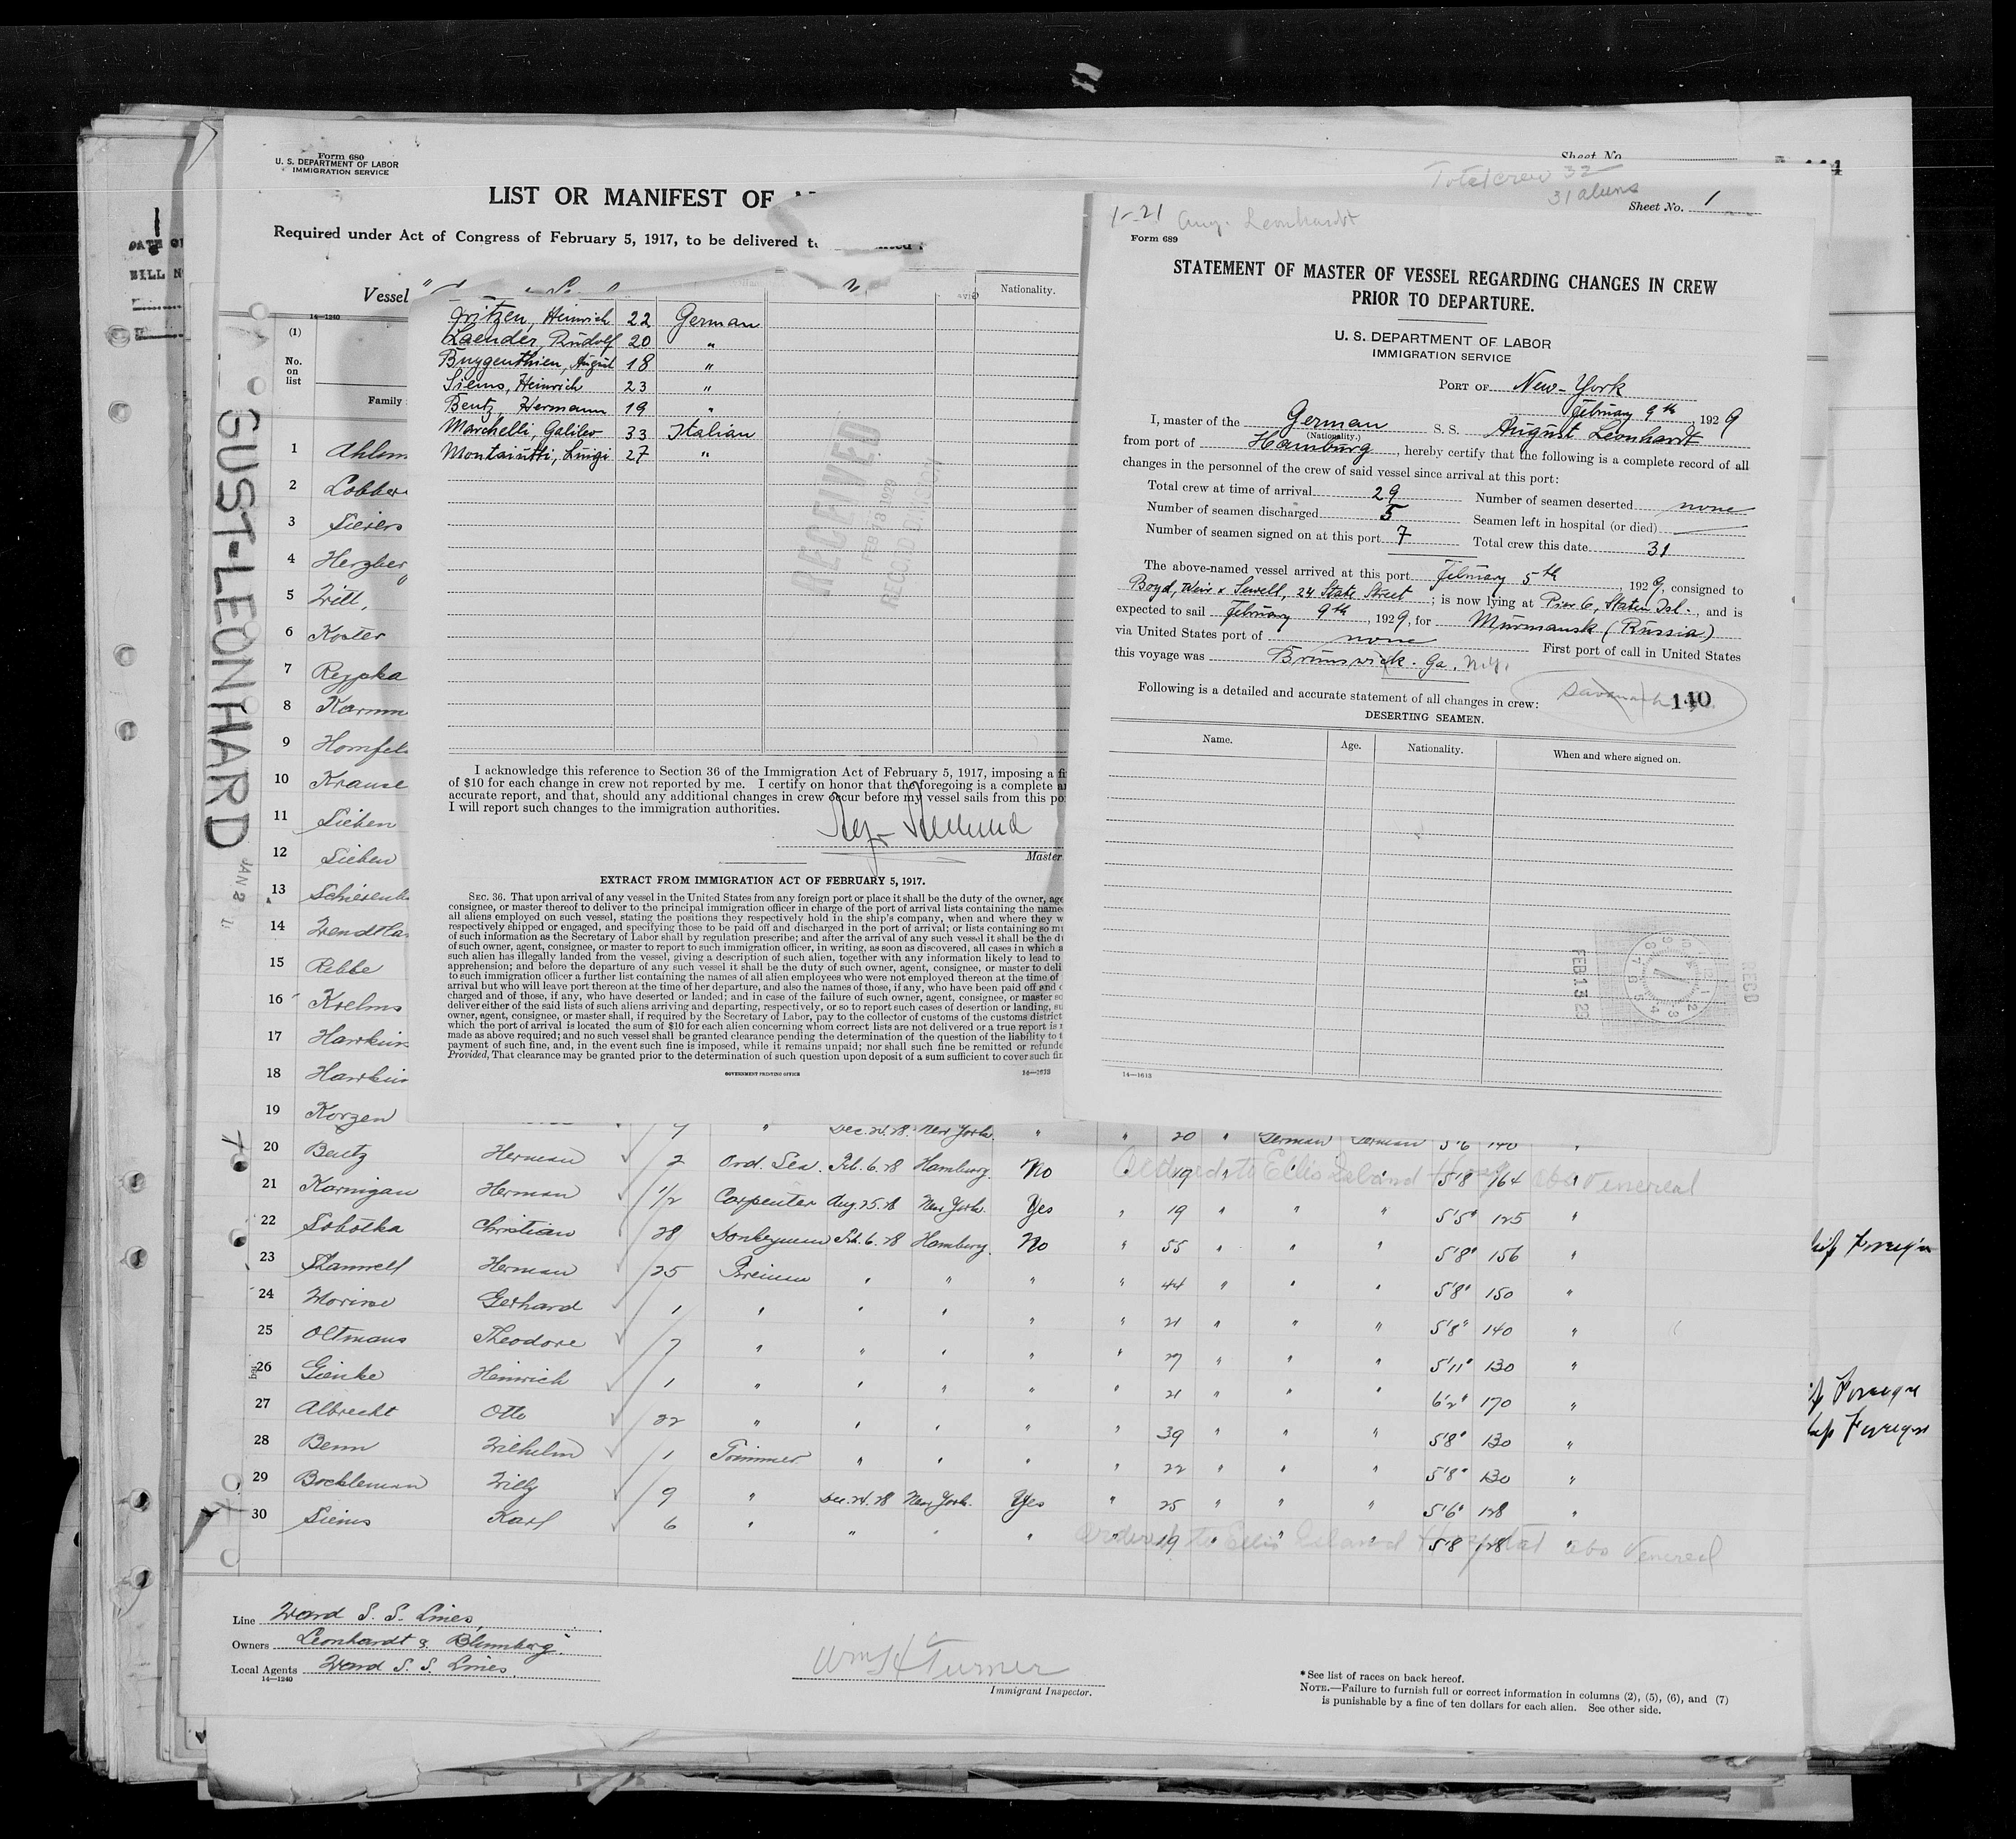 Form 680
U. S. DEPARTMENT OF LABOR
IMMIGRATION SERVICE
Sheet No.
LIST OR MANIFEST OF
Required under Act of Congress of February 5, 1917, to be delivered
Vessel
14—1240
(1)
No.
on
list
Family
AUGUST-LEONHARD
JAN 2
BILL
1 Ahlem
2 Lobber
3 Sievers
4 Herzberg
5 Will,
6 Koster
7 Rezpka
8 Karmm
9 Homfel
10 Krause
11 Sieben
12 Sieben
13 Schiesenh
14 Wendtla
15 Rebbe
16 Koelms
17 Hawkins
18 Hawkin
19 Korzen
Nationality.
Fritzen, Heinrich 22 German
Laender, Rudolf 20 "
Buggenthien, August 18 "
Siems, Heinrich 23 "
Bentz, Hermann 19 "
Marchelli, Galileo 33 Italian
Montaiutti, Luigi 27 "
RECEIVED
FEB 13 1929
RECORD DIVISION
I acknowledge this reference to Section 36 of the Immigration Act of February 5, 1917, imposing a fi
of $10 for each change in crew not reported by me. I certify on honor that the foregoing is a complete a
accurate report, and that, should any additional changes in crew occur before my vessel sails from this po
I will report such changes to the immigration authorities.
Master
EXTRACT FROM IMMIGRATION ACT OF FEBRUARY 5, 1917.
SEC. 36. That upon arrival of any vessel in the United States from any foreign port or place it shall be the duty of the owner, age
consignee, or master thereof to deliver to the principal immigration officer in charge of the port of arrival lists containing the name
all aliens employed on such vessel, stating the positions they respectively hold in the ship's company, when and where they w
respectively shipped or engaged, and specifying those to be paid off and discharged in the port of arrival; or lists containing so mu
of such information as the Secretary of Labor shall by regulation prescribe; and after the arrival of any such vessel it shall be the du
of such owner, agent, consignee, or master to report to such immigration officer, in writing, as soon as discovered, all cases in which a
such alien has illegally landed from the vessel, giving a description of such alien, together with any information likely to lead to
apprehension; and before the departure of any such vessel it shall be the duty of such owner, agent, consignee, or master to deli
to such immigration officer a further list containing the names of all alien employees who were not employed thereon at the time of
arrival but who will leave port thereon at the time of her departure, and also the names of those, if any, who have been paid off and d
charged and of those, if any, who have deserted or landed; and in case of the failure of such owner, agent, consignee, or master so
deliver either of the said lists of such aliens arriving and departing, respectively, or so to report such cases of desertion or landing, su
owner, agent, consignee, or master shall, if required by the Secretary of Labor, pay to the collector of customs of the customs district
which the port of arrival is located the sum of $10 for each alien concerning whom correct lists are not delivered or a true report is n
made as above required; and no such vessel shall be granted clearance pending the determination of the question of the liability to t
payment of such fine, and, in the event such fine is imposed, while it remains unpaid; nor shall such fine be remitted or refunde
Provided, That clearance may be granted prior to the determination of such question upon deposit of a sum sufficient to cover such fin
GOVERNMENT PRINTING OFFICE
14—1613
Total crew 32
31 aliens
Sheet No. 1
1-21 Aug. Leonhardt
Form 689
STATEMENT OF MASTER OF VESSEL REGARDING CHANGES IN CREW
PRIOR TO DEPARTURE.
U. S. DEPARTMENT OF LABOR
IMMIGRATION SERVICE
PORT OF New-York
February 9th, 1929
I, master of the German S. S. August Leonhardt
(Nationality.)
from port of Hamburg, hereby certify that the following is a complete record of all
changes in the personnel of the crew of said vessel since arrival at this port:
Total crew at time of arrival 29 Number of seamen deserted none
Number of seamen discharged 5 Seamen left in hospital (or died)
Number of seamen signed on at this port 7 Total crew this date 31
The above-named vessel arrived at this port February 5th, 1929, consigned to
Boyd, Weir & Sewell, 24 State Street; is now lying at Pier 6, Staten Isl., and is
expected to sail February 9th, 1929, for Murmansk (Russia)
via United States port of none First port of call in United States
this voyage was Brunswick. Ga. N.Y.
Following is a detailed and accurate statement of all changes in crew: Savannah 140
DESERTING SEAMEN.
Name. Age. Nationality. When and where signed on.
REC'D
FEB 13 29
14—1613
7 " Dec. 24. 28. New York. " " 20 " German German 5'6 140 "
20 Bentz Herman 2 Ord. Sea. Feb. 6. 28 Hamburg. No 19 5'8 164 "
Ordered to Ellis Island Hospital abo Venereal
21 Karnigan Herman 1/2 Carpenter Aug. 25. 28 New York. Yes " 19 " " " 5'5" 125 "
22 Sobotka Christian 28 Donkeyman Feb. 6. 28 Hamburg. No " 55 " " " 5'8" 156 "
23 Thamwell Herman 25 Fireman " " " " 44 " " " 5'8" 150 "
24 Gerhard 1 " " " " " 21 " " " 5'8" 140 "
25 Oltmans Theodore 7 " " " " " 27 " " " 5'11" 130 "
26 Gienke Heinrich 1 " " " " " 21 " " " 6'2" 170 "
27 Albrecht Otto 22 " " " " " 39 " " " 5'8" 130 "
28 Benn Wilhelm 1 Trimmer " " " " 22 " " " 5'8" 130 "
29 Bockleman Willy 9 " Dec. 24. 28 New York. Yes " 25 " " " 5'6" 128 "
30 Siems Karl 6 " " " " " 19 " " " 5'8 128 "
Ordered to Ellis Island Hospital abo Venereal
Line Ward S. S. Lines,
Owners Leonhardt & Blumberg.
Local Agents Ward S. S. Lines.
14—1240
Wm H Turner
Immigrant Inspector.
*See list of races on back hereof.
NOTE.—Failure to furnish full or correct information in columns (2), (5), (6), and (7)
is punishable by a fine of ten dollars for each alien. See other side.
Foreign
Foreign
Foreign